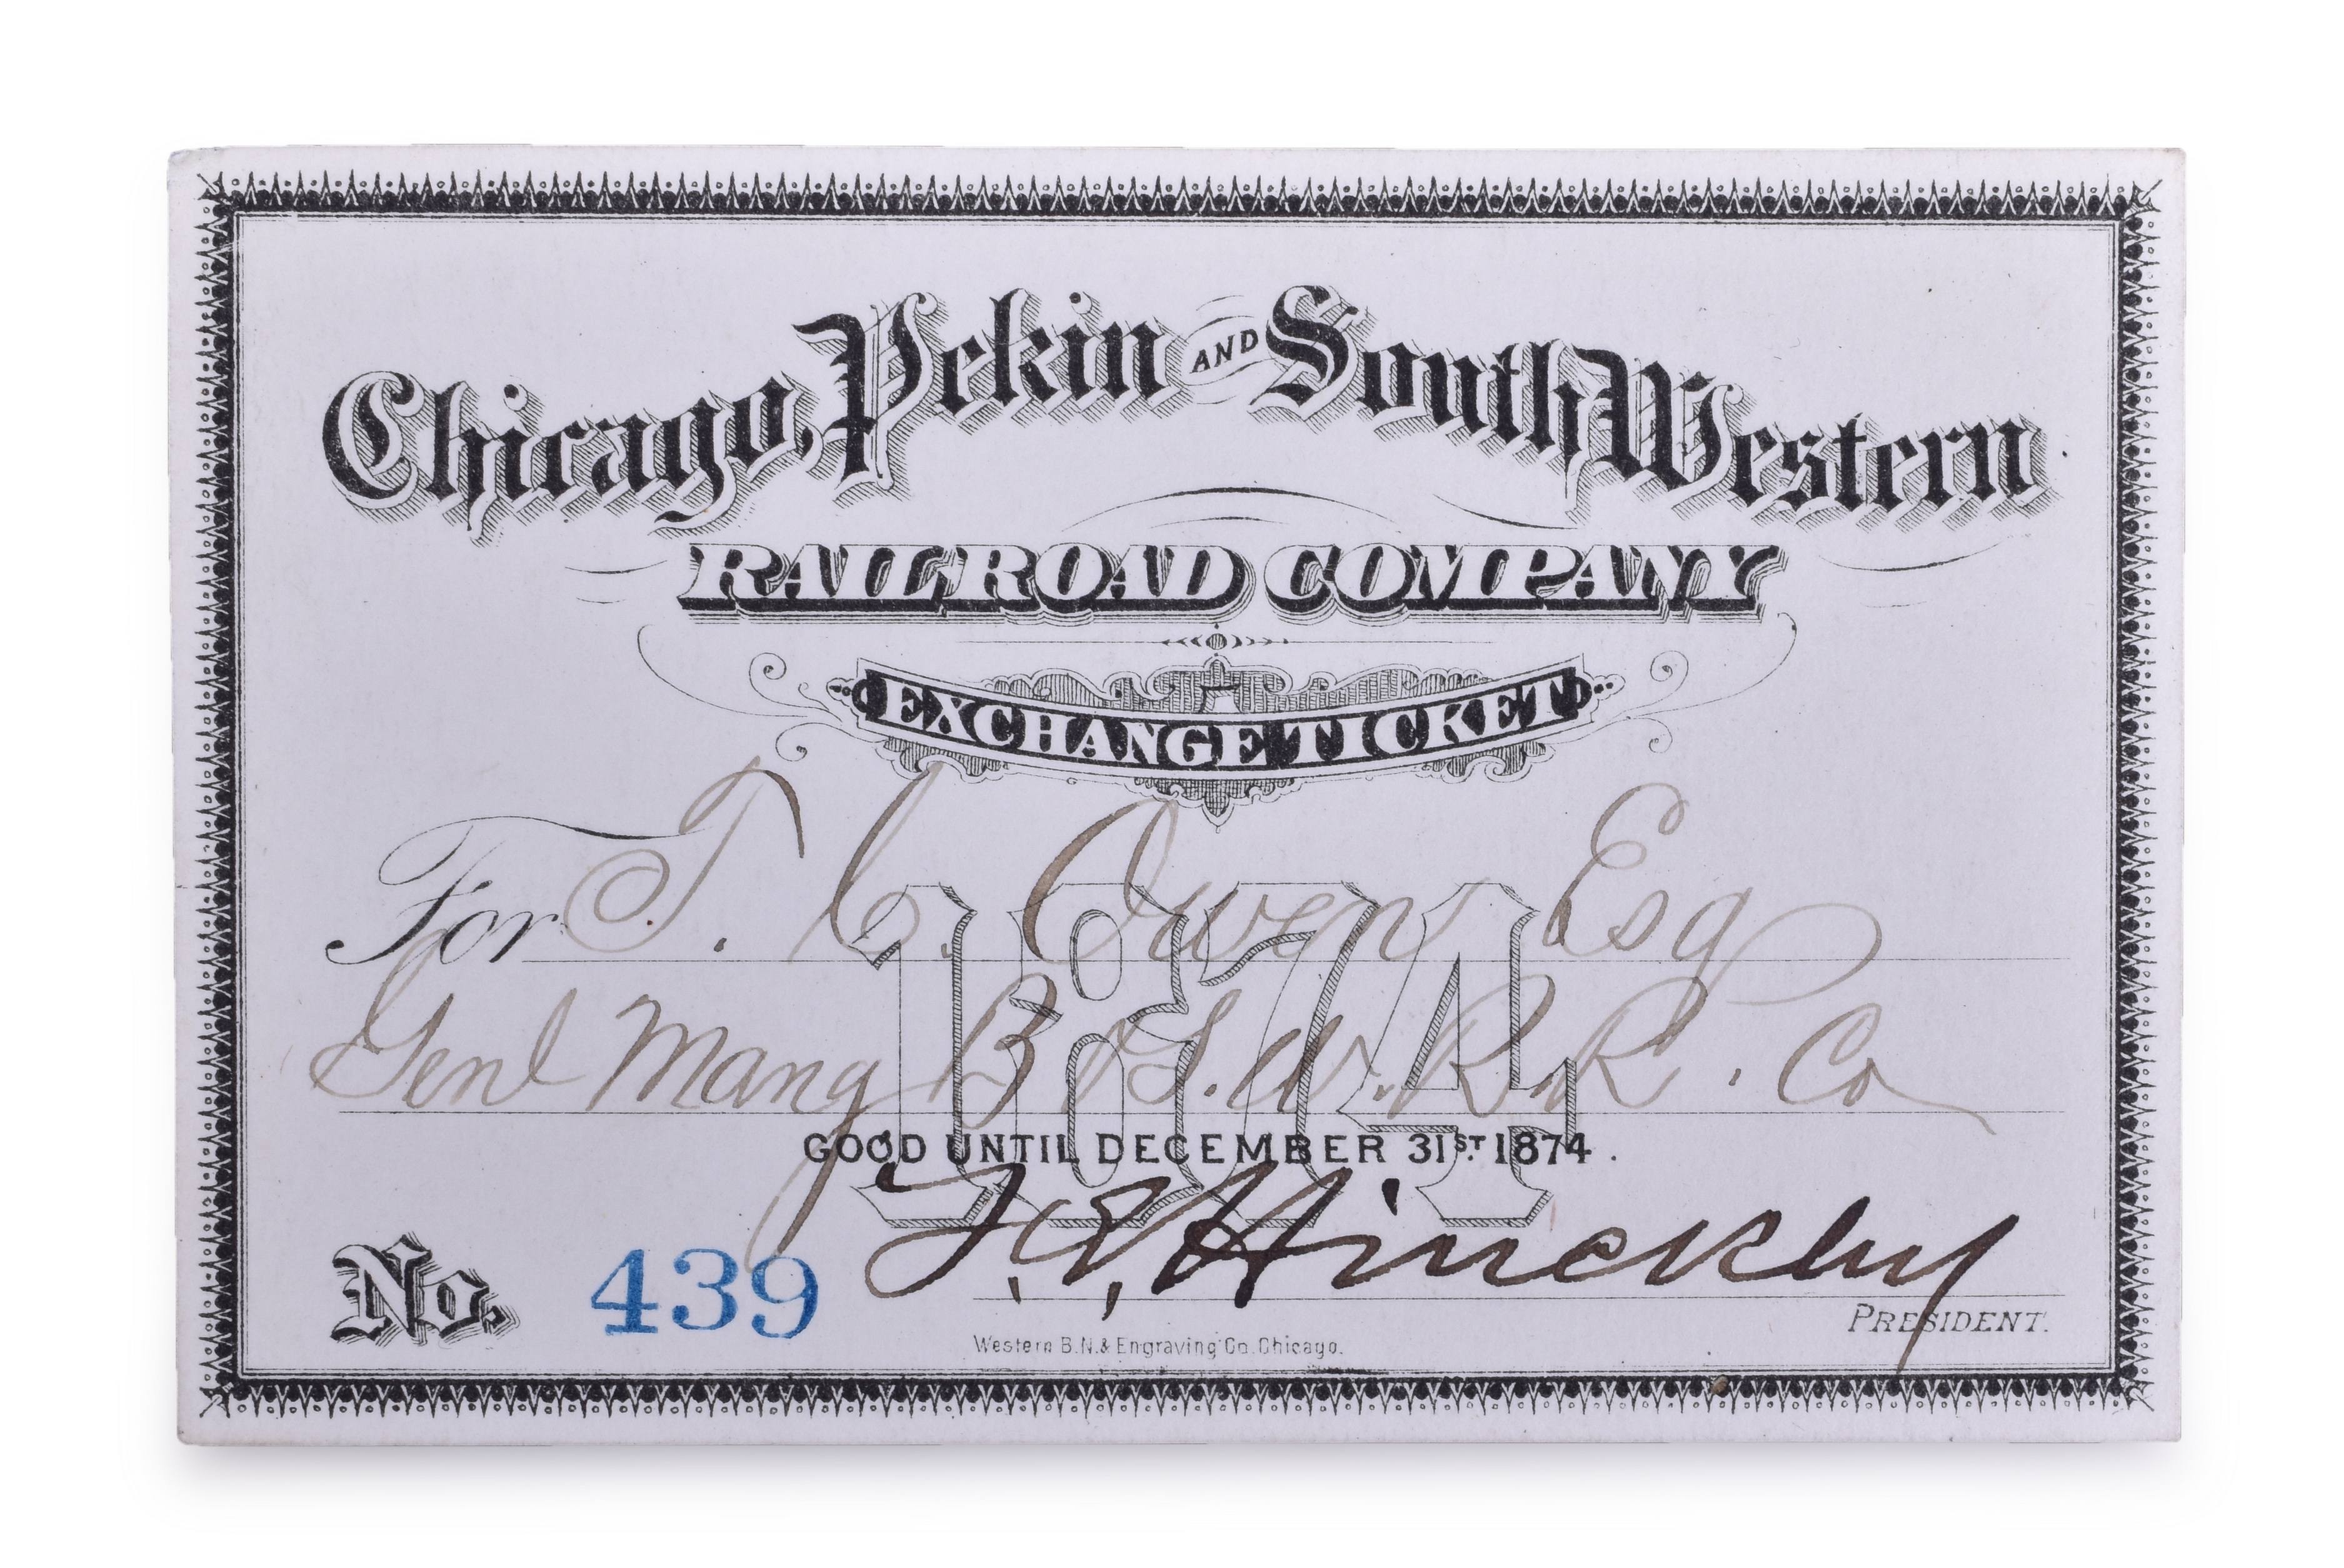 Chicago, Pekin AND South Western
RAILROAD COMPANY
EXCHANGE TICKET
1874
For T. C. Owen Esq
Genl Mang B & S. W. R. R. Co
GOOD UNTIL DECEMBER 31ST 1874.
No. 439 Hinckley
PRESIDENT.
Western B.N. & Engraving Co. Chicago.